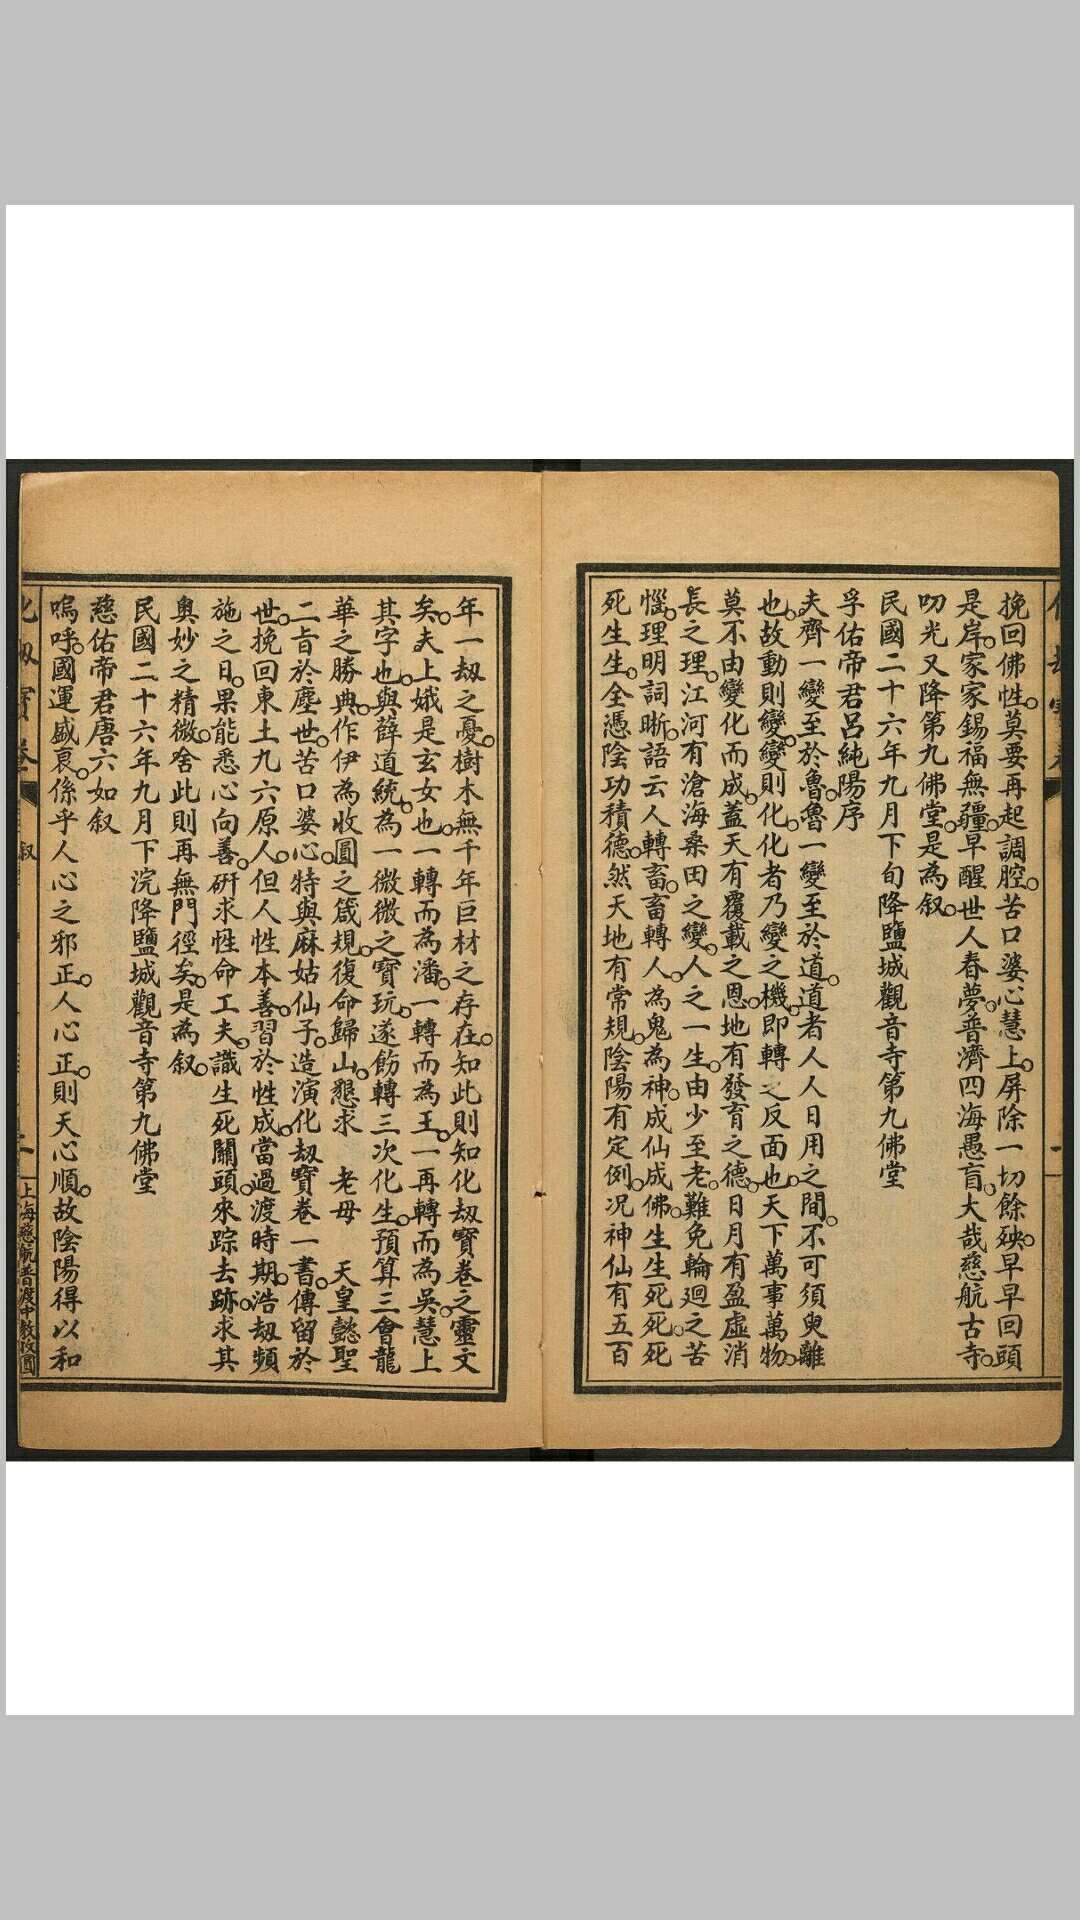 挽回佛性。莫要再起調腔。苦口婆心慧上。屏除一切餘殃。早早回頭
是岸。家家錫福無疆。早醒世人春夢。普濟四海愚盲。大哉慈航古寺。
叨光又降第九佛堂。是為叙。
民國二十六年九月下旬降鹽城觀音寺第九佛堂
孚佑帝君呂純陽序
夫齊一變至於魯。魯一變至於道。道者人人日用之間。不可須臾離
也。故動則變。變則化。化者乃變之機。即轉之反面也。天下萬事萬物。
莫不由變化而成。蓋天有覆載之恩。地有發育之德。日月有盈虛消
長之理。江河有滄海桑田之變。人之一生。由少至老。難免輪廻之苦
惱。理明詞晰。語云人轉畜。畜轉人。為鬼為神。成仙成佛。生生死死。死
死生生。全憑陰功積德。然天地有常規。陰陽有定例。况神仙有五百
年一刼之憂。樹木無千年巨材之存在。知此則知化刼寳卷之靈文
矣。夫上娥是玄女也。一轉而為潘。一轉而為王。一再轉而為吳。慧上
其字也。與薛道統。為一微微之寳玩。遂飭轉三次化生。預算三會龍
華之勝典。作伊為收圓之箴規。復命歸山。懇求 老母 天皇懿聖
二旨於塵世。苦口婆心。特與麻姑仙子。造演化刼寳卷一書。傳留於
世。挽回東土九六原人。但人性本善。習於性成。當過渡時期。浩刼頻
施之日。果能悉心向善。研求性命工夫。識生死關頭。來踪去跡。求其
奥妙之精微。舍此則再無門徑矣。是為叙。
民國二十六年九月下浣降鹽城觀音寺第九佛堂
慈佑帝君唐六如叙
嗚呼。國運盛衰。係乎人心之邪正。人心正。則天心順。故陰陽得以和
化刼寳卷 叙 二 上海慈航普渡中教收圓